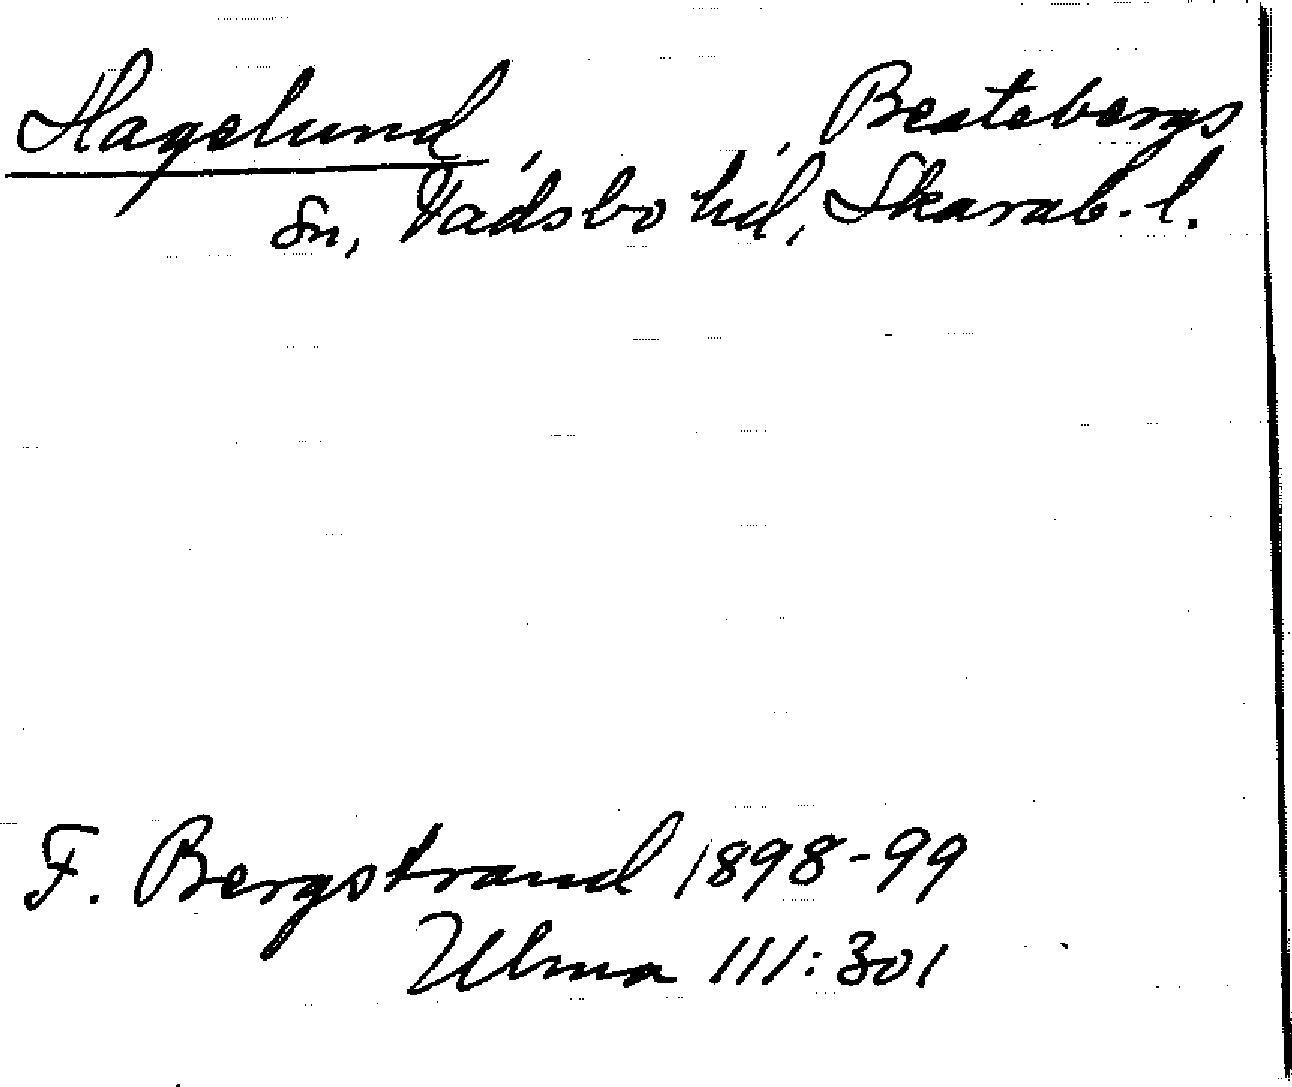 Hagelund, , Beatebergs
sn, Vadsbo hd, Skarab. l.
F. Bergstrand 1898-99
Ulma 111:301